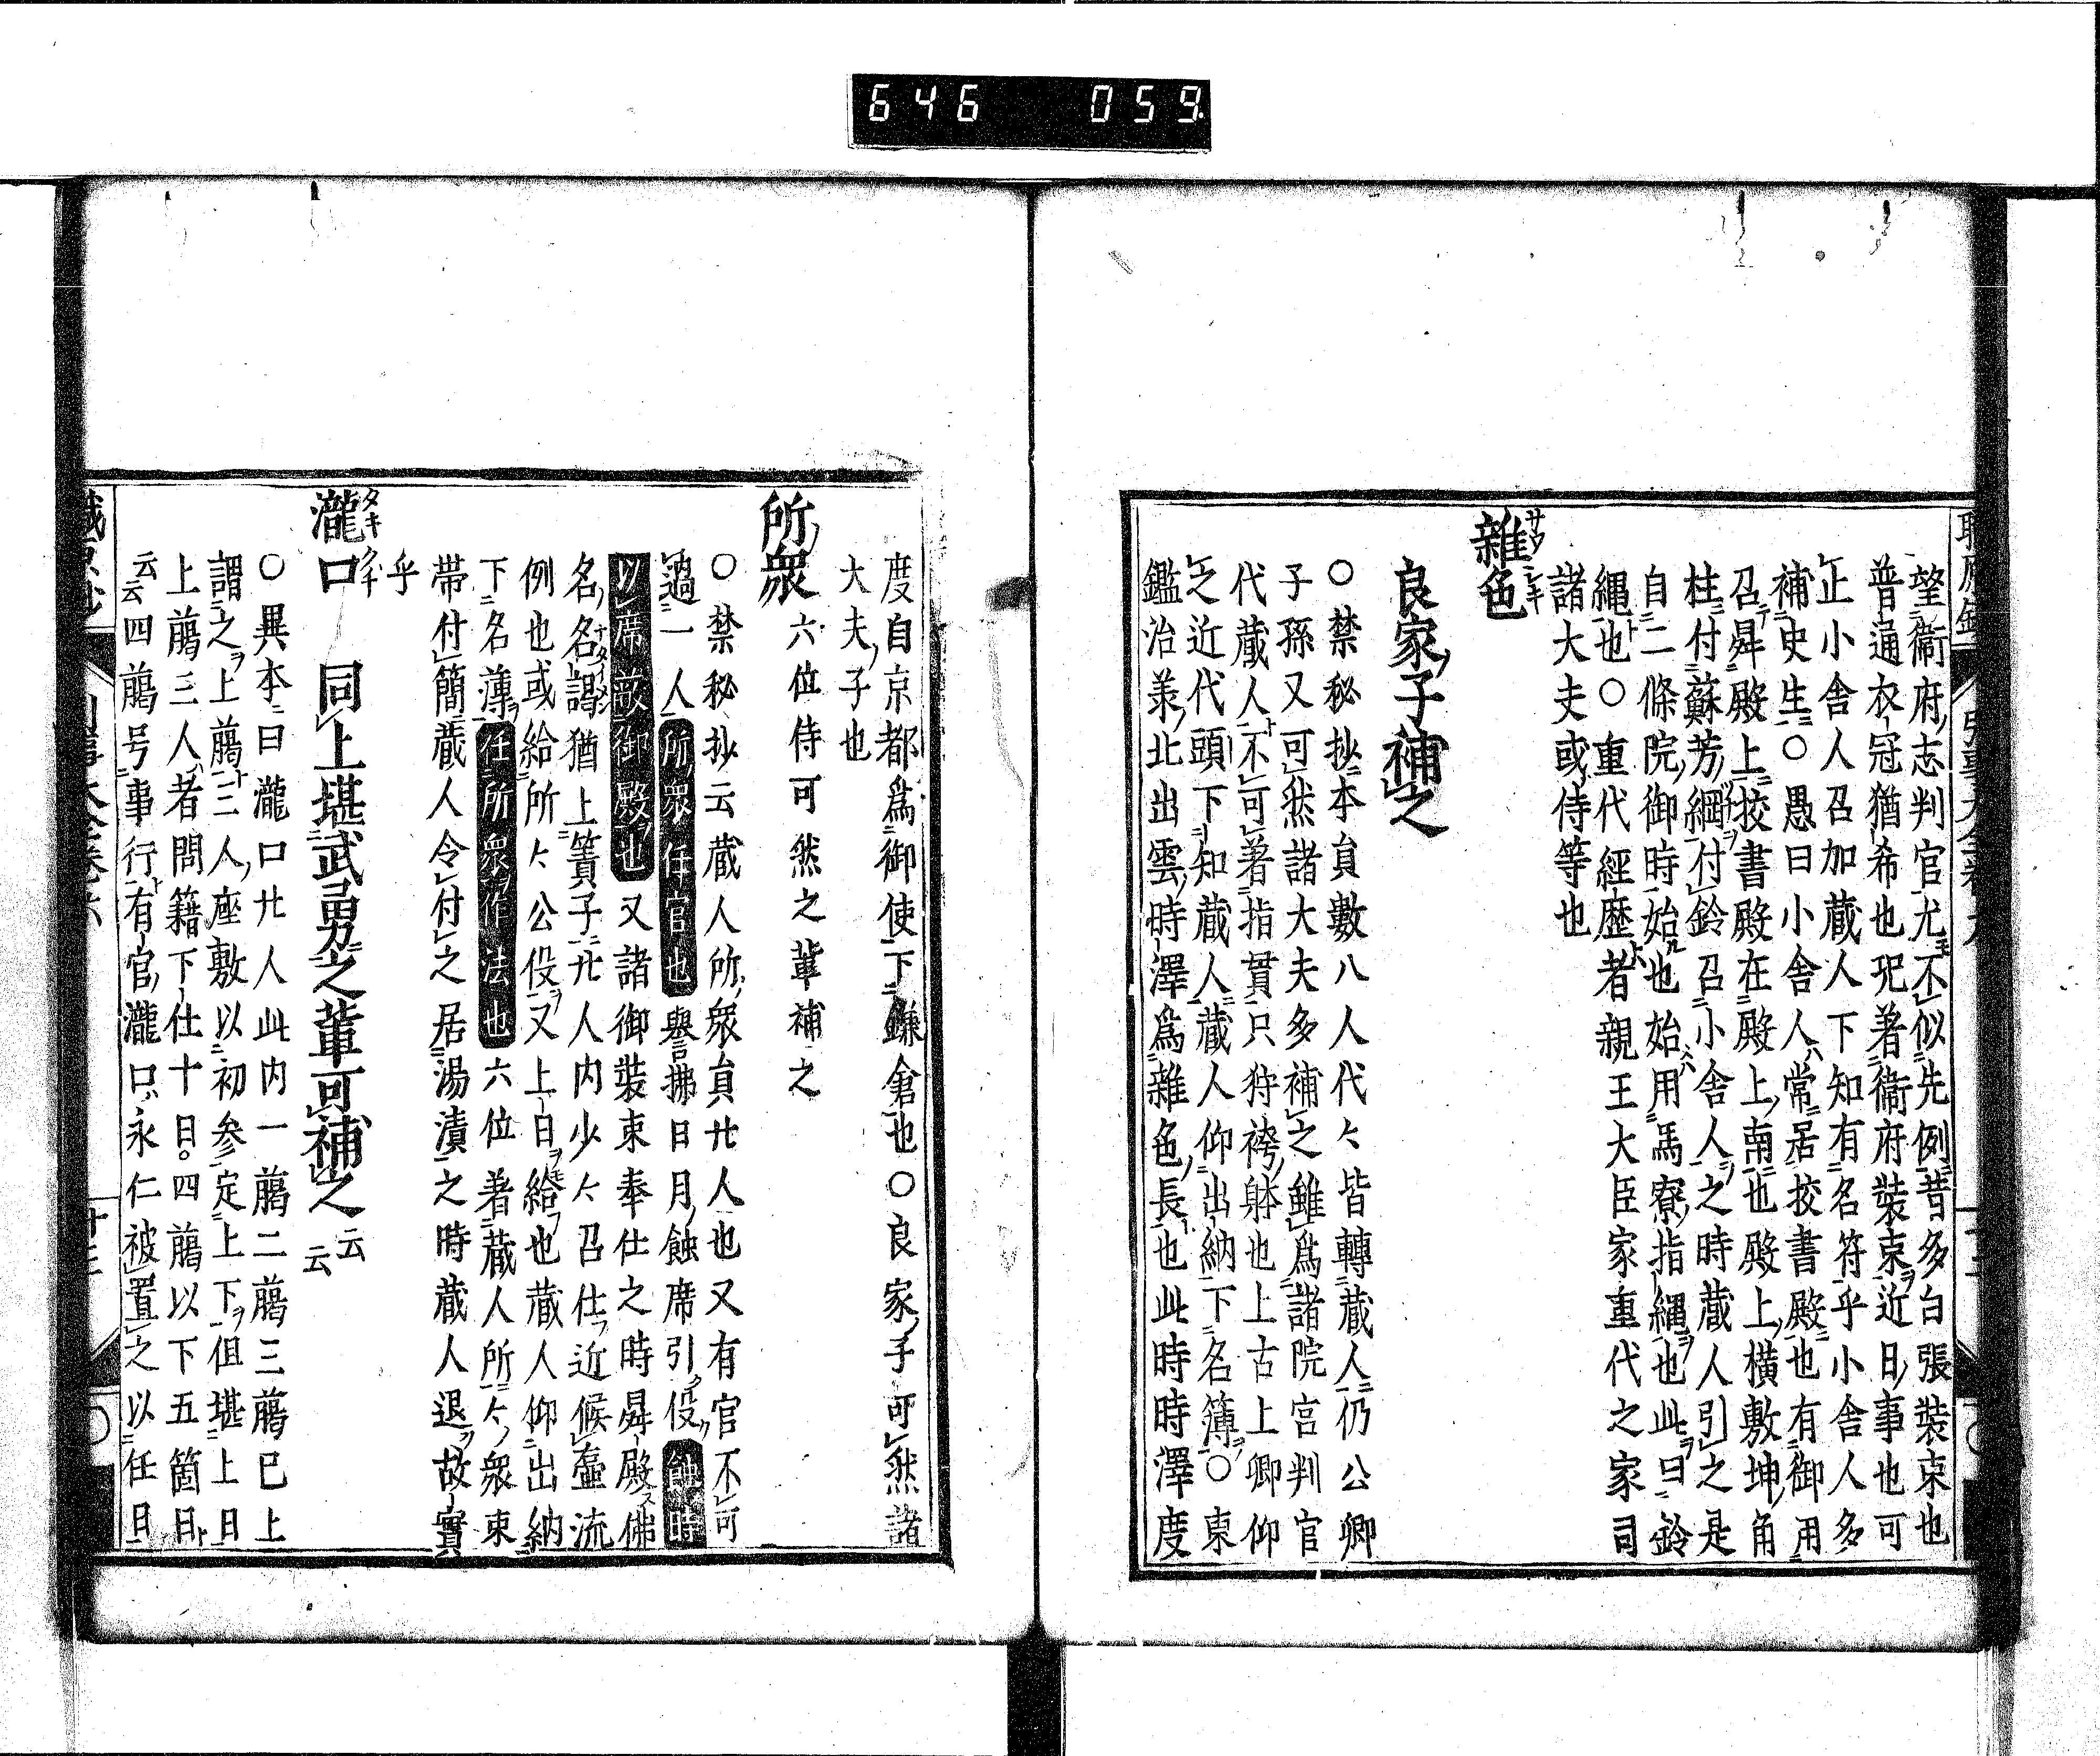 646 059
望衞府志判官尤不似先例昔多白張裝束也
普通衣冠猶希也況著衞府裝束近日事也可
正小舎人召加蔵人下知有名符乎小舎人多
補史生〇愚曰小舎人常居挍書殿也有御用
召舜殿上挍書殿在殿上南也殿上橫敷坤角
柱付蘇芳綱付鈴召小舎人之時蔵人引之是
自二條院御時始也始用馬寮指縄也此曰鈴
縄也〇重代經歴者親王大臣家重代之家司
諸大夫或侍等也
雜色
サウシキ
良家子補之
〇禁秘抄本員數八人代々皆轉蔵人仍公卿
子孫又可然諸大夫多補之雖爲諸院宮判官
代蔵人不可著指貫只狩袴躰也上古上卿仰
之近代頭下知蔵人蔵人仰出納下名簿〇東
鑑治羕北出雲時澤爲雜色長也此時時澤度
度自京都爲御使下鎌倉也〇良家子可然諸
大夫子也
所衆 六位侍可然之軰補之
〇禁秘抄云蔵人所衆員廿人也又有官不可
過一人所衆任官也譽拂日月蝕席引役蝕時
以席蔽御殿也又諸御裝束奉仕之時舜殿佛
名名謁猶上簀子廿人内少々召仕近候壺流
例也或給所々公役又上日給也蔵人仰出納
下名薄任所衆作法也六位著蔵人所々衆束
帶付簡蔵人令付之居湯漬之時蔵人退故實
乎
瀧口 同上堪武勇之軰可補之云云
タキクチ
〇異本曰瀧口廿人此内一﨟二﨟三﨟已上
謂之上﨟三人座敷以初参定上下但堪上日
上﨟三人者問籍下仕十日。四﨟以下五箇日
云云四﨟号事行有官瀧口永仁被置之以任日